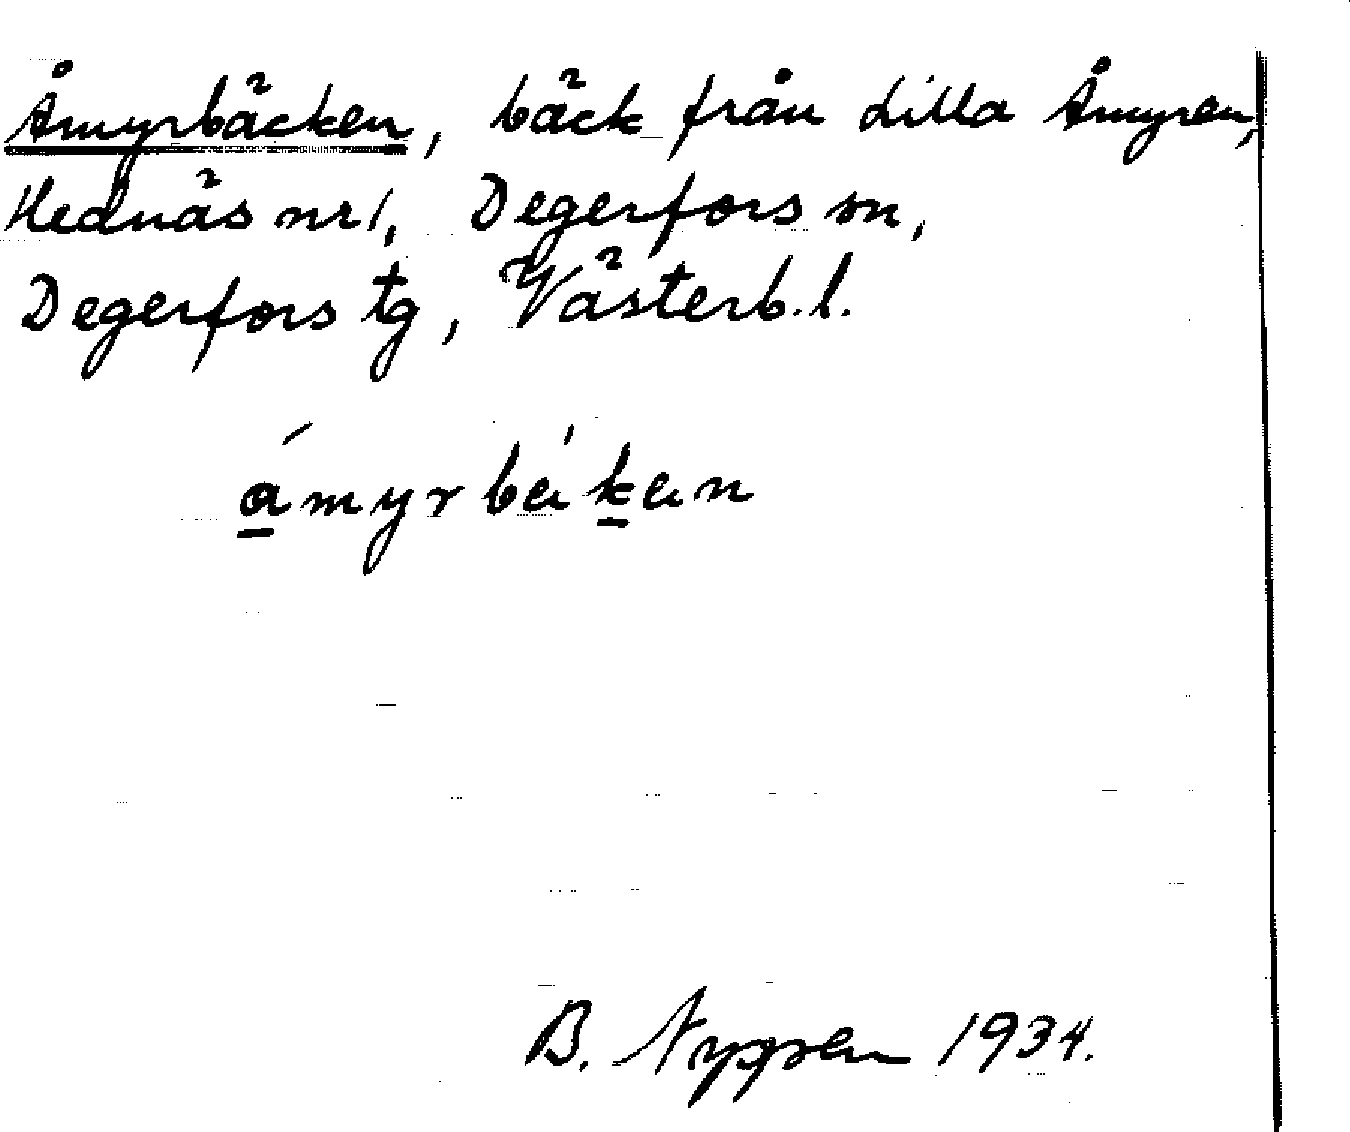 Åmyrbäcken, bäck från Lilla Åmyren,
Hednäs nr 1, Degerfors sn,
Degerfors tg, Västerb. l.
åmyrbäkän
B. Nygren 1934.